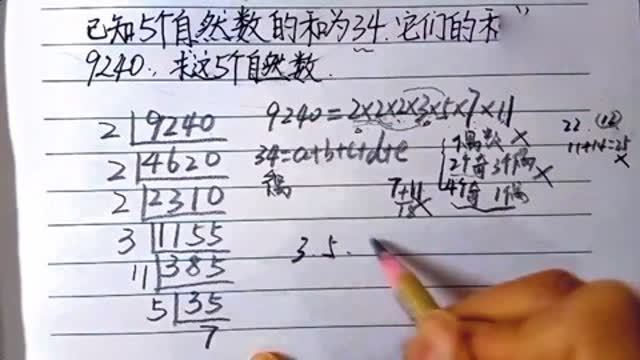 已知5个自然数的和为34.它们的
9240.,求这5个自然数.
9240=2×2×2×3×5×7×11
34=a+b+c+d+e
偶
偶数×
2个奇3个偶×
4个奇1个偶
7+11
18×
22.(12)
11+14=25
×
2 9240
2 4620
2 2310
3 1155
11 385
5 35
7
3.5.